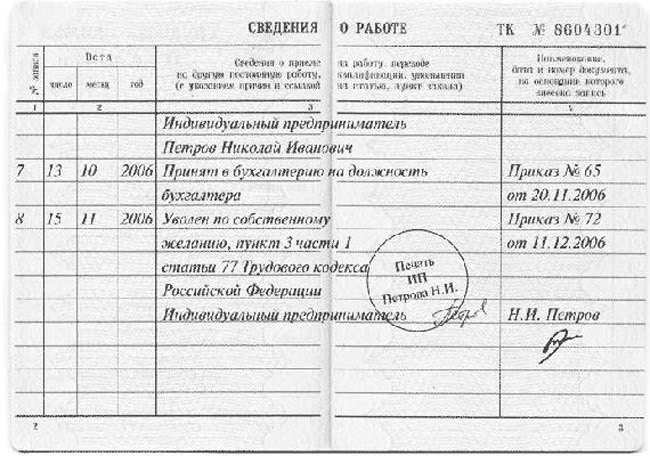 СВЕДЕНИЯ О РАБОТЕ ТК № 8604301
№ записи
Дата
число месяц год
Сведения о приеме на работу, переводе
на другую постоянную работу, квалификации, увольнении
(с указанием причин и ссылкой на статью, пункт закона)
Наименование,
дата и номер документа,
на основании которого
внесена запись
1 2 3 4
Индивидуальный предприниматель
Петров Николай Иванович
7 13 10 2006 Принят в бухгалтерию на должность Приказ № 65
бухгалтера от 20.11.2006
8 15 11 2006 Уволен по собственному Приказ № 72
желанию, пункт 3 части 1 от 11.12.2006
статьи 77 Трудового кодекса
Российской Федерации
Индивидуальный предприниматель Н.И. Петров
Печать
ИП
Петрова Н.И.
2 3